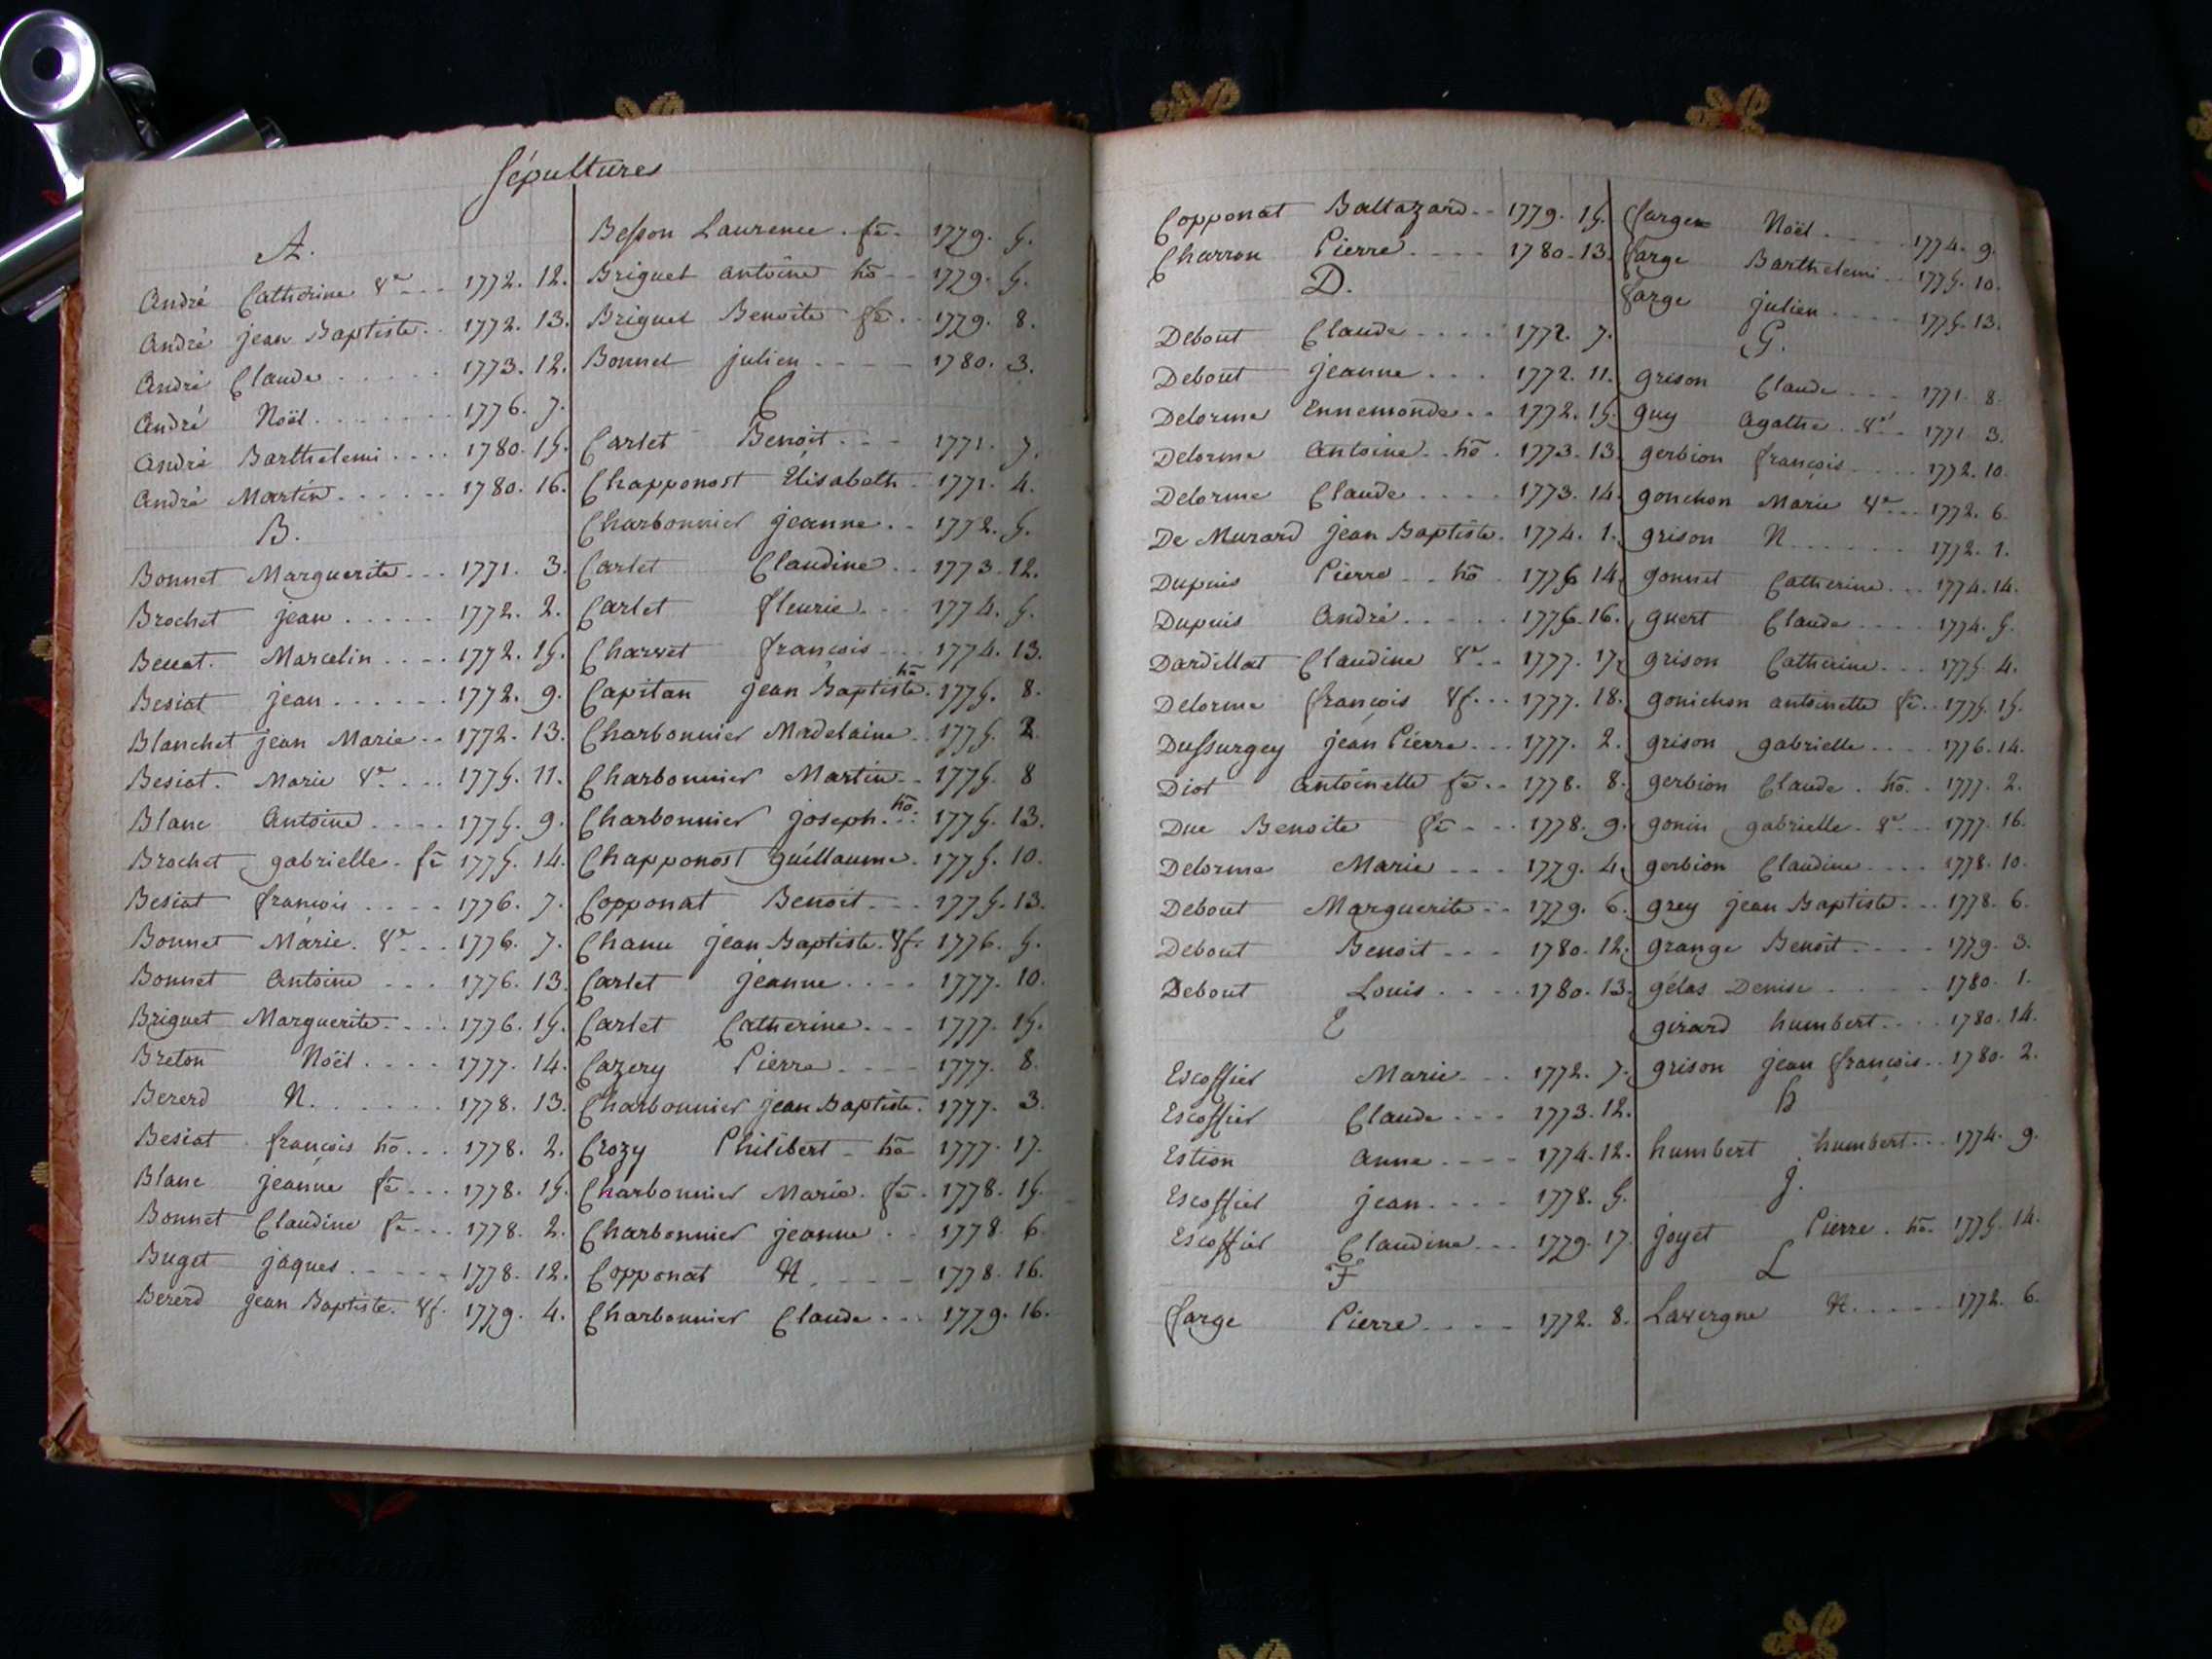 Sépultures
A.
André Catherine Vᵉ 1772. 12.
André jean Baptiste 1772. 13.
André Claude 1773. 12.
André Noël 1776. 7.
André Barthelemi 1780. 15.
André Martin 1780. 16.
B.
Bonnet Marguerite 1771. 3.
Brochet jean 1772. 2.
Marcelin 1772. 15.
Besiat jean 1772. 9.
Blanchet jean Marie 1772. 13.
Besiat. Marie Vᵉ 1775. 11.
Blanc Antoine 1775. 9.
Brochet gabrielle. fē 1775. 14.
Besiat françois 1776. 7.
Bonnet Marie. Vᵉ 1776. 7.
Bonnet Antoine 1776. 13.
Briguet Marguerite 1776. 15.
Breton Noël 1777. 14.
Bererd N. 1778. 13.
Besiat françois hō 1778. 2.
Blanc jeanne fē 1778. 15.
Bonnet Claudine fē 1778. 2.
Buget jaques 1778. 12.
Bererd jean Baptiste. Vf. 1779. 4.
Besson Laurence. fē 1779. 5.
Briguet antoine hō 1779. 5.
Briguet Benoite fē 1779. 8.
Bonnet julien 1780. 3.
C
Carlet Benoit 1771. 7.
Chapponost Elisabeth 1771. 4.
Charbonnier jeanne 1772. 5.
Carlet Claudine 1773. 12.
Carlet fleurie 1774. 5.
Charvet françois 1774. 13.
Capitan jean Baptiste hō 1775. 8.
Charbonnier Madelaine 1775. 2.
Charbonnier Martin 1775. 8
Charbonnier joseph. hō 1775. 13.
Chapponost guillaume. 1775. 10.
Copponat Benoit 1775. 13.
Chanu jean Baptiste. Vf. 1776. 5.
Carlet jeanne 1777. 10.
Carlet Catherine 1777. 15.
Cazery Pierre 1777. 8.
Charbonnier jean Baptiste. 1777. 3.
Crozy Philibert hō 1777. 17.
Charbonnier Marie. fē 1778. 15.
Charbonnier jeanne 1778. 6.
Copponat N. 1778. 16.
Charbonnier Claude 1779. 16.
Copponat Baltazard 1779. 15.
Charron Pierre 1780. 13.
D.
Debout Claude 1772. 7.
Debout jeanne 1772. 11.
Delorme Ennemonde 1772. 15.
Delorme Antoine hō 1773. 13.
Delorme Claude 1773. 14.
De Murard jean Baptiste. 1774. 1.
Dupuis Pierre hō 1776 14.
Dupuis André 1776. 16.
Dardillat Claudine Vᵉ 1777. 17.
Delorme françois Vf. 1777. 18.
Dussurgey jean Pierre 1777. 2.
Diot Antoinette fē 1778. 8.
Duc Benoite fē 1778. 9.
Delorme Marie 1779. 4.
Debout Marguerite 1779. 6.
Debout Benoit 1780. 12.
Debout Louis 1780. 13.
E
Escoffier Marie 1772. 7.
Escoffier Claude 1773. 12.
Estion Anne 1774. 12.
Escoffier jean 1778. 5.
Escoffier Claudine 1779. 17.
F
farge Pierre 1772. 8.
farge Noël 1774. 9.
farge Barthelemi 1775. 10.
farge julien 1775. 13.
G.
grison Claude 1771. 8.
guy Agathe. Vᵉ 1771 3.
gerbion françois 1772. 10.
gonchon Marie Vᵉ 1772. 6.
grison N 1772. 1.
gonnet Catherine 1774. 14.
guert Claude 1774. 5.
grison Catherine 1775. 4.
gonichon antoinette fē 1775. 15.
grison gabrielle 1776. 14.
gerbion Claude. hō. 1777. 2.
gonin gabrielle. Vᵉ 1777. 16.
gerbion Claudine 1778. 10.
grey jean Baptiste 1778. 6.
grange Benoit 1779. 3.
gélas Denise 1780. 1.
girard humbert 1780. 14.
grison jean françois 1780. 2.
h
humbert humbert 1774. 9.
j.
joyet Pierre. hō. 1775. 14.
L
Lavergne N. 1772. 6.